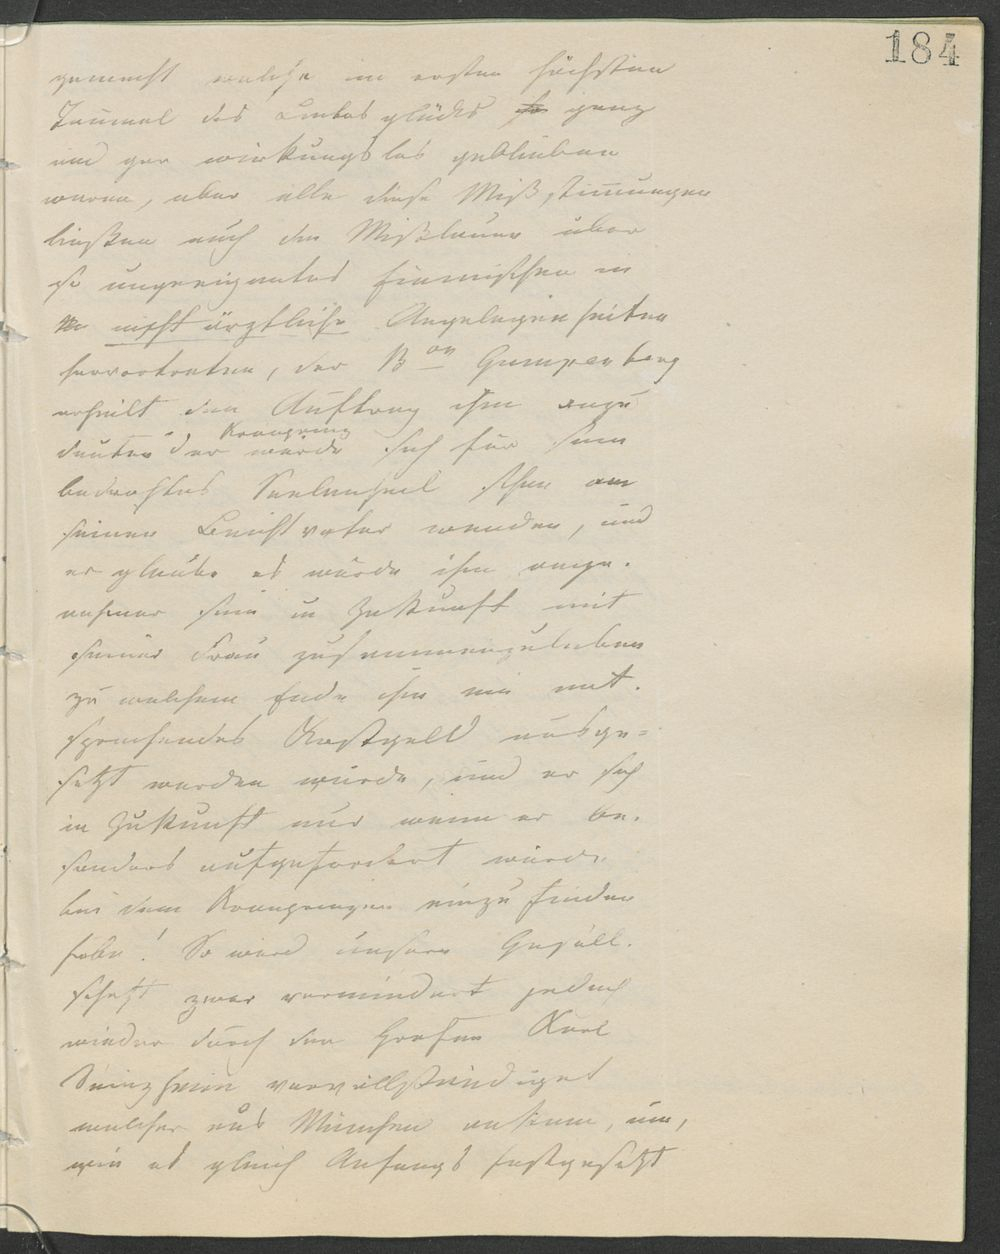 184
gemacht welche im ersten höchsten
Taumel des Liebesglücks so ganz
und gar wirkungslos geblieben
waren, aber alle diese Mißstimmungen
ließen auch die Mißlaune über
so ungeeignetes Einmischen in
nicht ärztliche Angelegenheiten
hervortreten, der Bon Gumppenberg
erhielt den Auftrag ihm anzu
deuten der Kronprinz würde sich für sein
bedrohtes Seelenheil schon an
seinen Beichtvater wenden, und
er glaube es würde ihm ange-
nehmer sein in Zukunft mit
seiner Frau zusammenzuleben
zu welchem Ende ihm ein ent-
sprechendes Kostgeld ausge=
setzt werden würde, und er sich
in Zukunft nur wenn er be-
sonders aufgefordert würde
bei dem Kronprinzen einzufinden
habe! So ward unsere Gesell-
schaft zwar vermindert jedoch
wieder durch den Grafen Karl
Seinsheim vervollständiget
welcher aus München ankam, um,
wie es gleich Anfangs festgesetzt